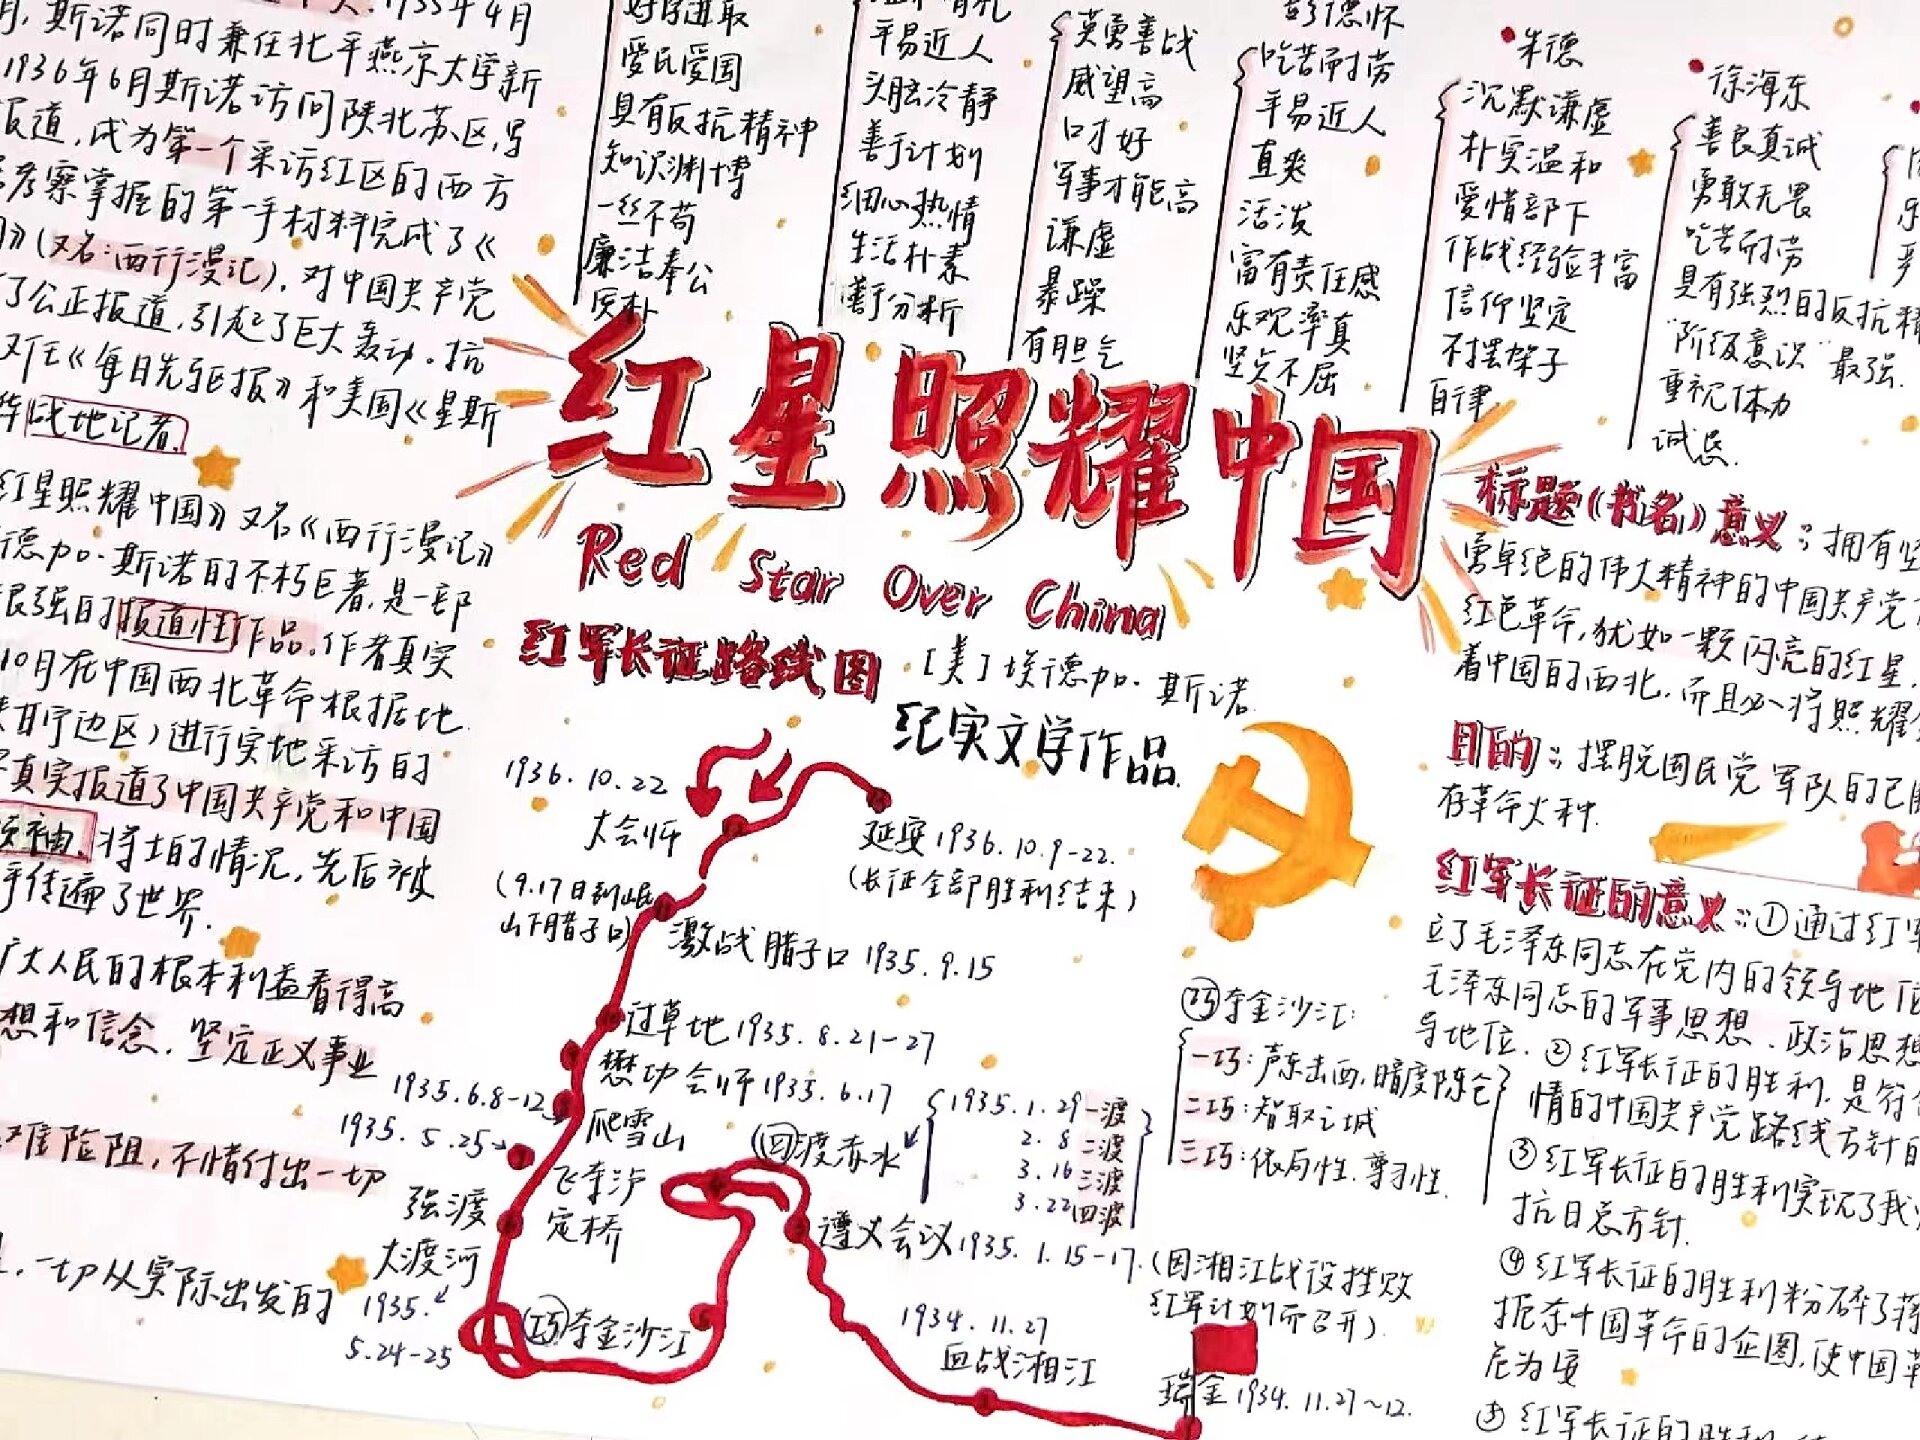 1935年4月
斯诺同时兼任北平燕京大学新
1936年6月斯诺访问陕北苏区,写
报道,成为第一个采访红区的西方
考察掌握的第一手材料完成了《
》(又名:西行漫记),对中国共产党
了公正报道,引起了巨大轰动。抗
又任《每日先驱报》和美国《星斯
战地记者.
红星照耀中国》又名《西行漫记》
德加·斯诺的不朽巨著,是一部
很强的报道性作品,作者真实
10月在中国西北革命根据地
甘宁边区)进行实地采访的
真实报道了中国共产党和中国
领袖、将士的情况,先后被
传遍了世界.
广大人民的根本利益看得高
想和信念,坚定正义事业
难险阻,不惜付出一切
,一切从实际出发的
好学进取
爱民爱国
具有反抗精神
知识渊博
一丝不苟
廉洁奉公
质朴
平易近人
头脑冷静
善于计划
细心热情
生活朴素
善于分析
英勇善战
威望高
口才好
军事才能高
谦虚
暴躁
有胆气
彭德怀
吃苦耐劳
平易近人
直爽
活泼
富有责任感
乐观率真
坚贞不屈
朱德
沉默谦虚
朴实温和
爱惜部下
作战经验丰富
信仰坚定
不摆架子
自律
徐海东
善良真诚
勇敢无畏
吃苦耐劳
具有强烈的反抗精
"阶级意识"最强.
重视体力
诚恳.
红星照耀中国
Red Star Over China
[美]埃德加·斯诺
纪实文学作品.
红军长征路线图
1936.10.22
大会师
延安1936.10.9-22.
(长征全部胜利结束)
(9.17日到岷
山下腊子口)
激战腊子口 1935.9.15
过草地1935.8.21-27
懋功会师1935.6.17
1935.6.8-12
爬雪山
1935.5.25
飞夺泸
定桥
强渡
大渡河
1935.
5.24-25
巧夺金沙江
四渡赤水
1935.1.29一渡
2.8 二渡
3.16三渡
3.22四渡
遵义会议1935.1.15-17.(因湘江战役挫败
红军计划而召开).
1934.11.27
血战湘江
瑞金1934.11.27~12.
巧夺金沙江:
一巧:声东击西,暗度陈仓
二巧:智取三城
三巧:依局性,尊习性.
标题(书名)意义:拥有坚
勇卓绝的伟大精神的中国共产党
红色革命,犹如一颗闪亮的红星,
着中国的西北,而且必将照耀
目的:摆脱国民党军队的包
存革命火种.
红军长征的意义:①通过红军
立了毛泽东同志在党内的领导地位
毛泽东同志的军事思想、政治思想
导地位.②红军长征的胜利,是符合
情的中国共产党路线方针的
③红军长征的胜利实现了我
抗日总方针.
④红军长征的胜利粉碎了蒋
扼杀中国革命的企图,使中国革
危为安
⑤红军长征的胜利